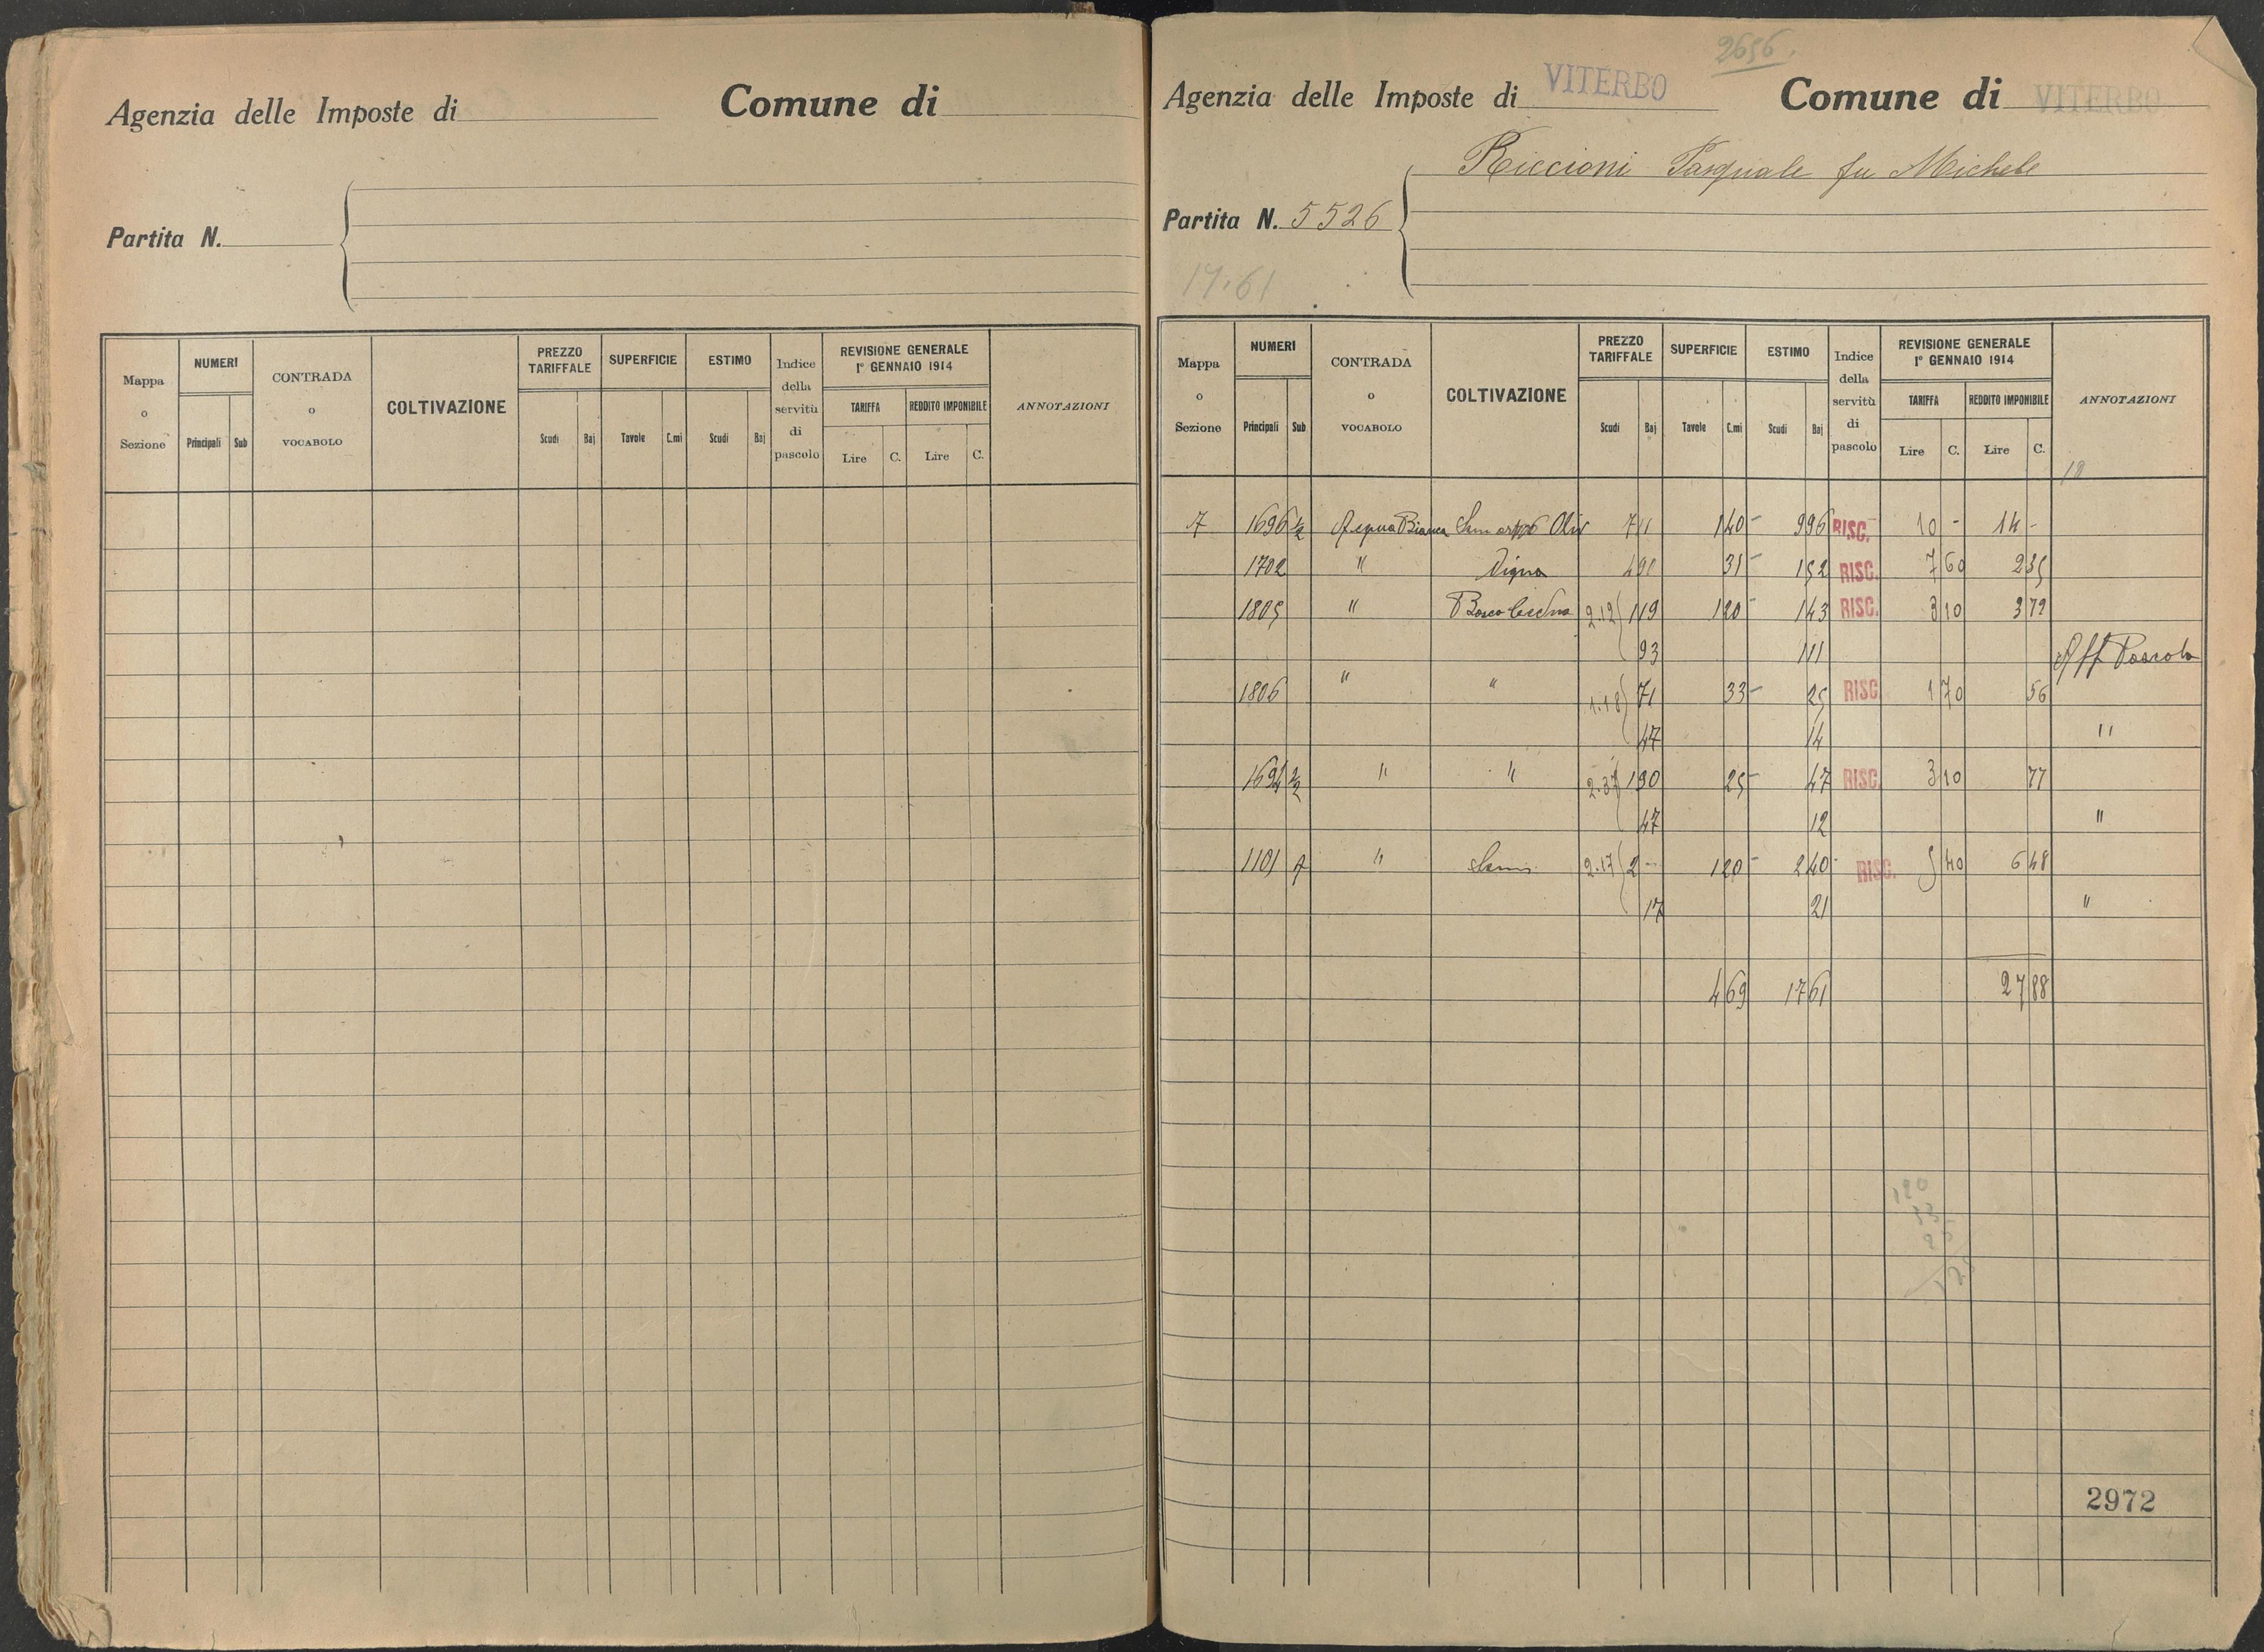 Agenzia delle Imposte di
Comune di
Partita N.
Mappa o Sezione
NUMERI
Principali Sub
CONTRADA o VOCABOLO
COLTIVAZIONE
PREZZO TARIFFALE
Scudi Baj
SUPERFICIE
Tavole C.mi
ESTIMO
Scudi Baj
Indice della servitù di pascolo
REVISIONE GENERALE
1° GENNAIO 1914
TARIFFA REDDITO IMPONIBILE
Lire C. Lire C.
ANNOTAZIONI
2656.
Agenzia delle Imposte di VITERBO Comune di VITERBO
Riccioni Pasquale fu Michele
Partita N. 5526
17.61
Mappa o Sezione
NUMERI
Principali Sub
CONTRADA o VOCABOLO
COLTIVAZIONE
PREZZO TARIFFALE
Scudi Baj
SUPERFICIE
Tavole C.mi
ESTIMO
Scudi Baj
Indice della servitù di pascolo
REVISIONE GENERALE
1° GENNAIO 1914
TARIFFA REDDITO IMPONIBILE
Lire C. Lire C.
ANNOTAZIONI
18
7 1696 1/2 Acqua Bianca Sem Oliv 711 140 - 996 RISC. 10 - 14 -
1702 " Vigna 490 31 - 152 RISC. 7 60 2 35
1805 " Bosco Ceduo 2.12 119 120 - 143 RISC. 3 10 3 72
93 111 Aff Pascolo
1806 " " 1.18 71 33 - 25 RISC 1 70 56
47 14 "
1694 2/2 " " 2.37 190 25 - 47 RISC. 3 10 77
47 12 "
1101 A " Sem. 2.17 2 - 120 - 240 - RISC. 5 40 6 48
17 21 "
469 1761 27 88
120
33
25
2972